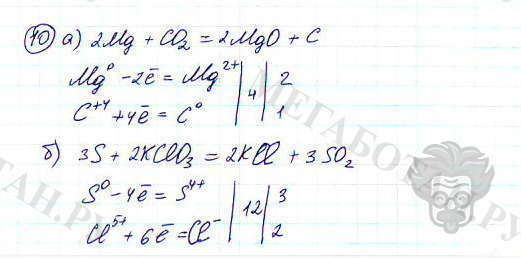 10 а) 2Mg + CO₂ = 2MgO + C
Mg⁰ - 2ē = Mg²⁺ | 4 | 2
C⁺⁴ + 4ē = C⁰ | | 1
б) 3S + 2KClO₃ = 2KCl + 3SO₂
S⁰ - 4ē = S⁴⁺ | 12 | 3
Cl⁵⁺ + 6ē = Cl⁻ | | 2
МЕГАБОТАН.РУ